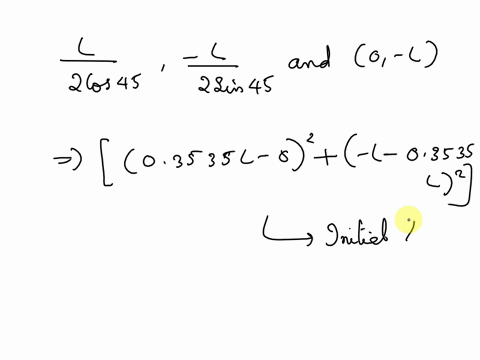 L/2Cos45 , -L/2Sin45 and (0,-L)
⇒) [(0.3535L-0)²+(-L-0.3535
L)²]
↳ Initial